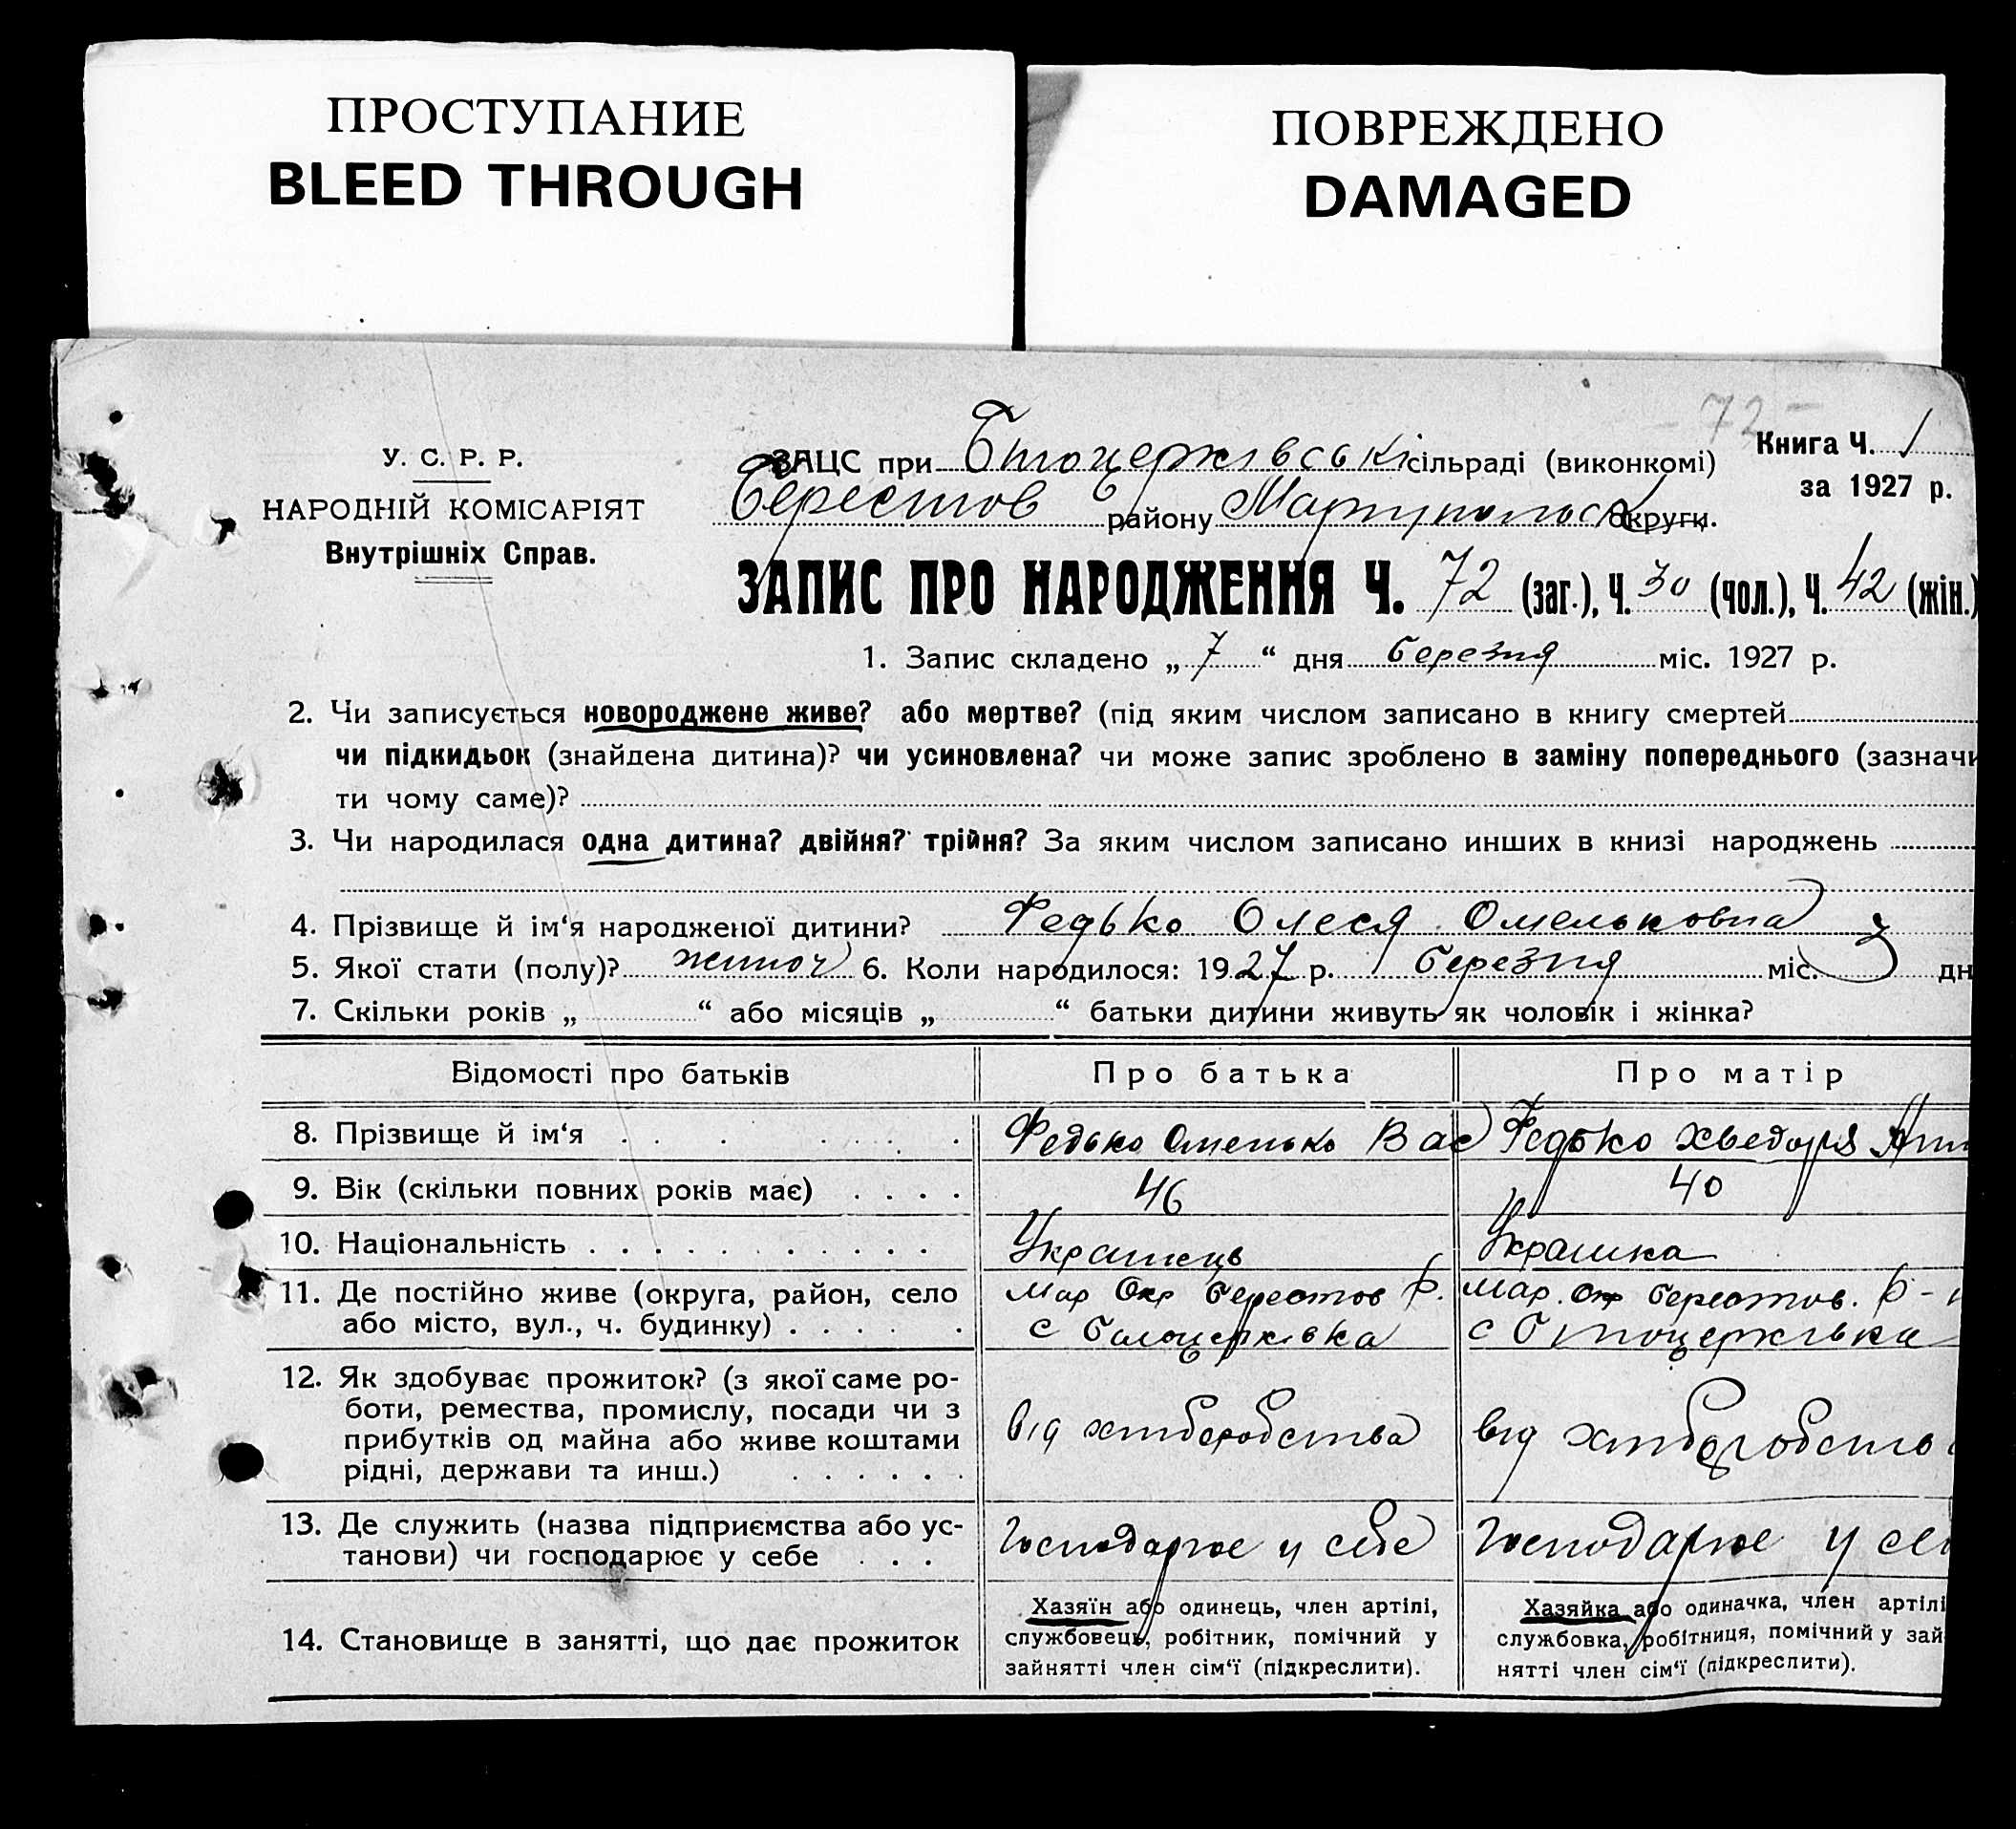 ПРОСТУПАНИЕ
BLEED THROUGH
ПОВРЕЖДЕНО
DAMAGED
72
У. С. Р. Р.
НАРОДНІЙ КОМІСАРІЯТ
Внутрішніх Справ.
ЗАЦС при Білоцерківській сільраді (виконкомі)
Берестов району Маріупольськ округи.
Книга Ч. 1
за 1927 р.
ЗАПИС ПРО НАРОДЖЕННЯ Ч. 72 (заг.), Ч. 30 (чол.), Ч. 42 (жін.)
1. Запис складено „ 7 “ дня березня міс. 1927 р.
2. Чи записується новороджене живе? або мертве? (під яким числом записано в книгу смертей
чи підкидьок (знайдена дитина)? чи усиновлена? чи може запис зроблено в заміну попереднього (зазначи
ти чому саме)?
3. Чи народилася одна дитина? двійня? трійня? За яким числом записано инших в книзі народжень
4. Прізвище й ім‘я народженої дитини? Федько Олеся Омельковна
5. Якої стати (полу)? жіноч 6. Коли народилося: 1927 р. березня міс. 3 дн
7. Скільки років „ “ або місяців „ “ батьки дитини живуть як чоловік і жінка?
Відомості про батьків Про батька Про матір
8. Прізвище й ім‘я Федько Омелько Вас Федько Хведоря
9. Вік (скільки повних років має) 46 40
10. Національність Українець Українка
11. Де постійно живе (округа, район, село Мар Окр Берестов р. Мар. Окр Берестов. р-н
або місто, вул., ч. будинку) с Білоцерківка с Білоцерківка
12. Як здобуває прожиток? (з якої саме ро-
боти, ремества, промислу, посади чи з
прибутків од майна або живе коштами
рідні, держави та инш.)
від хліборобства від хліборобств
13. Де служить (назва підприємства або ус-
танови) чи господарює у себе
Господарює у себе Господарює у себ
14. Становище в занятті, що дає прожиток
Хазяїн або одинець, член артілі,
службовець, робітник, помічний у
зайнятті член сім‘ї (підкреслити).
Хазяйка або одиначка, член артілі
службовка, робітниця, помічний у зай
нятті член сім‘ї (підкреслити).